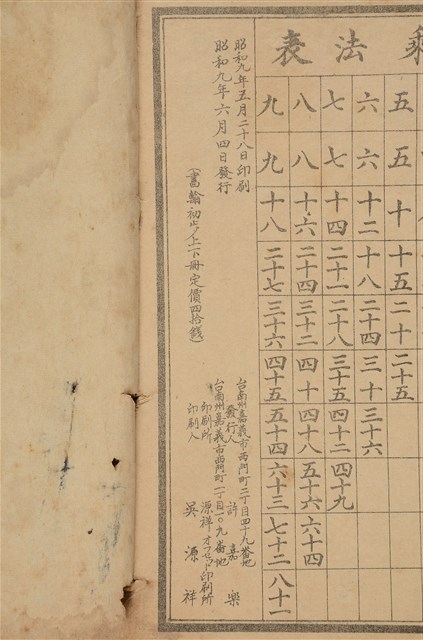 乘法表
五 五 十 十五 二十 二十五
六 六 十二 十八 二十四 三十 三十六
七 七 十四 二十一 二十八 三十五 四十二 四十九
八 八 十六 二十四 三十二 四十 四十八 五十六 六十四
九 九 十八 二十七 三十六 四十五 五十四 六十三 七十二 八十一
昭和九年五月二十八日印刷
昭和九年六月四日發行
(書翰初步ノ上下冊定價四拾錢)
台南州嘉義市西門町二丁目四十九番地
發行人 許嘉樂
台南州嘉義市西門町一丁目一〇九番地
印刷所 源祥オフセット印刷所
印刷人 吳源祥